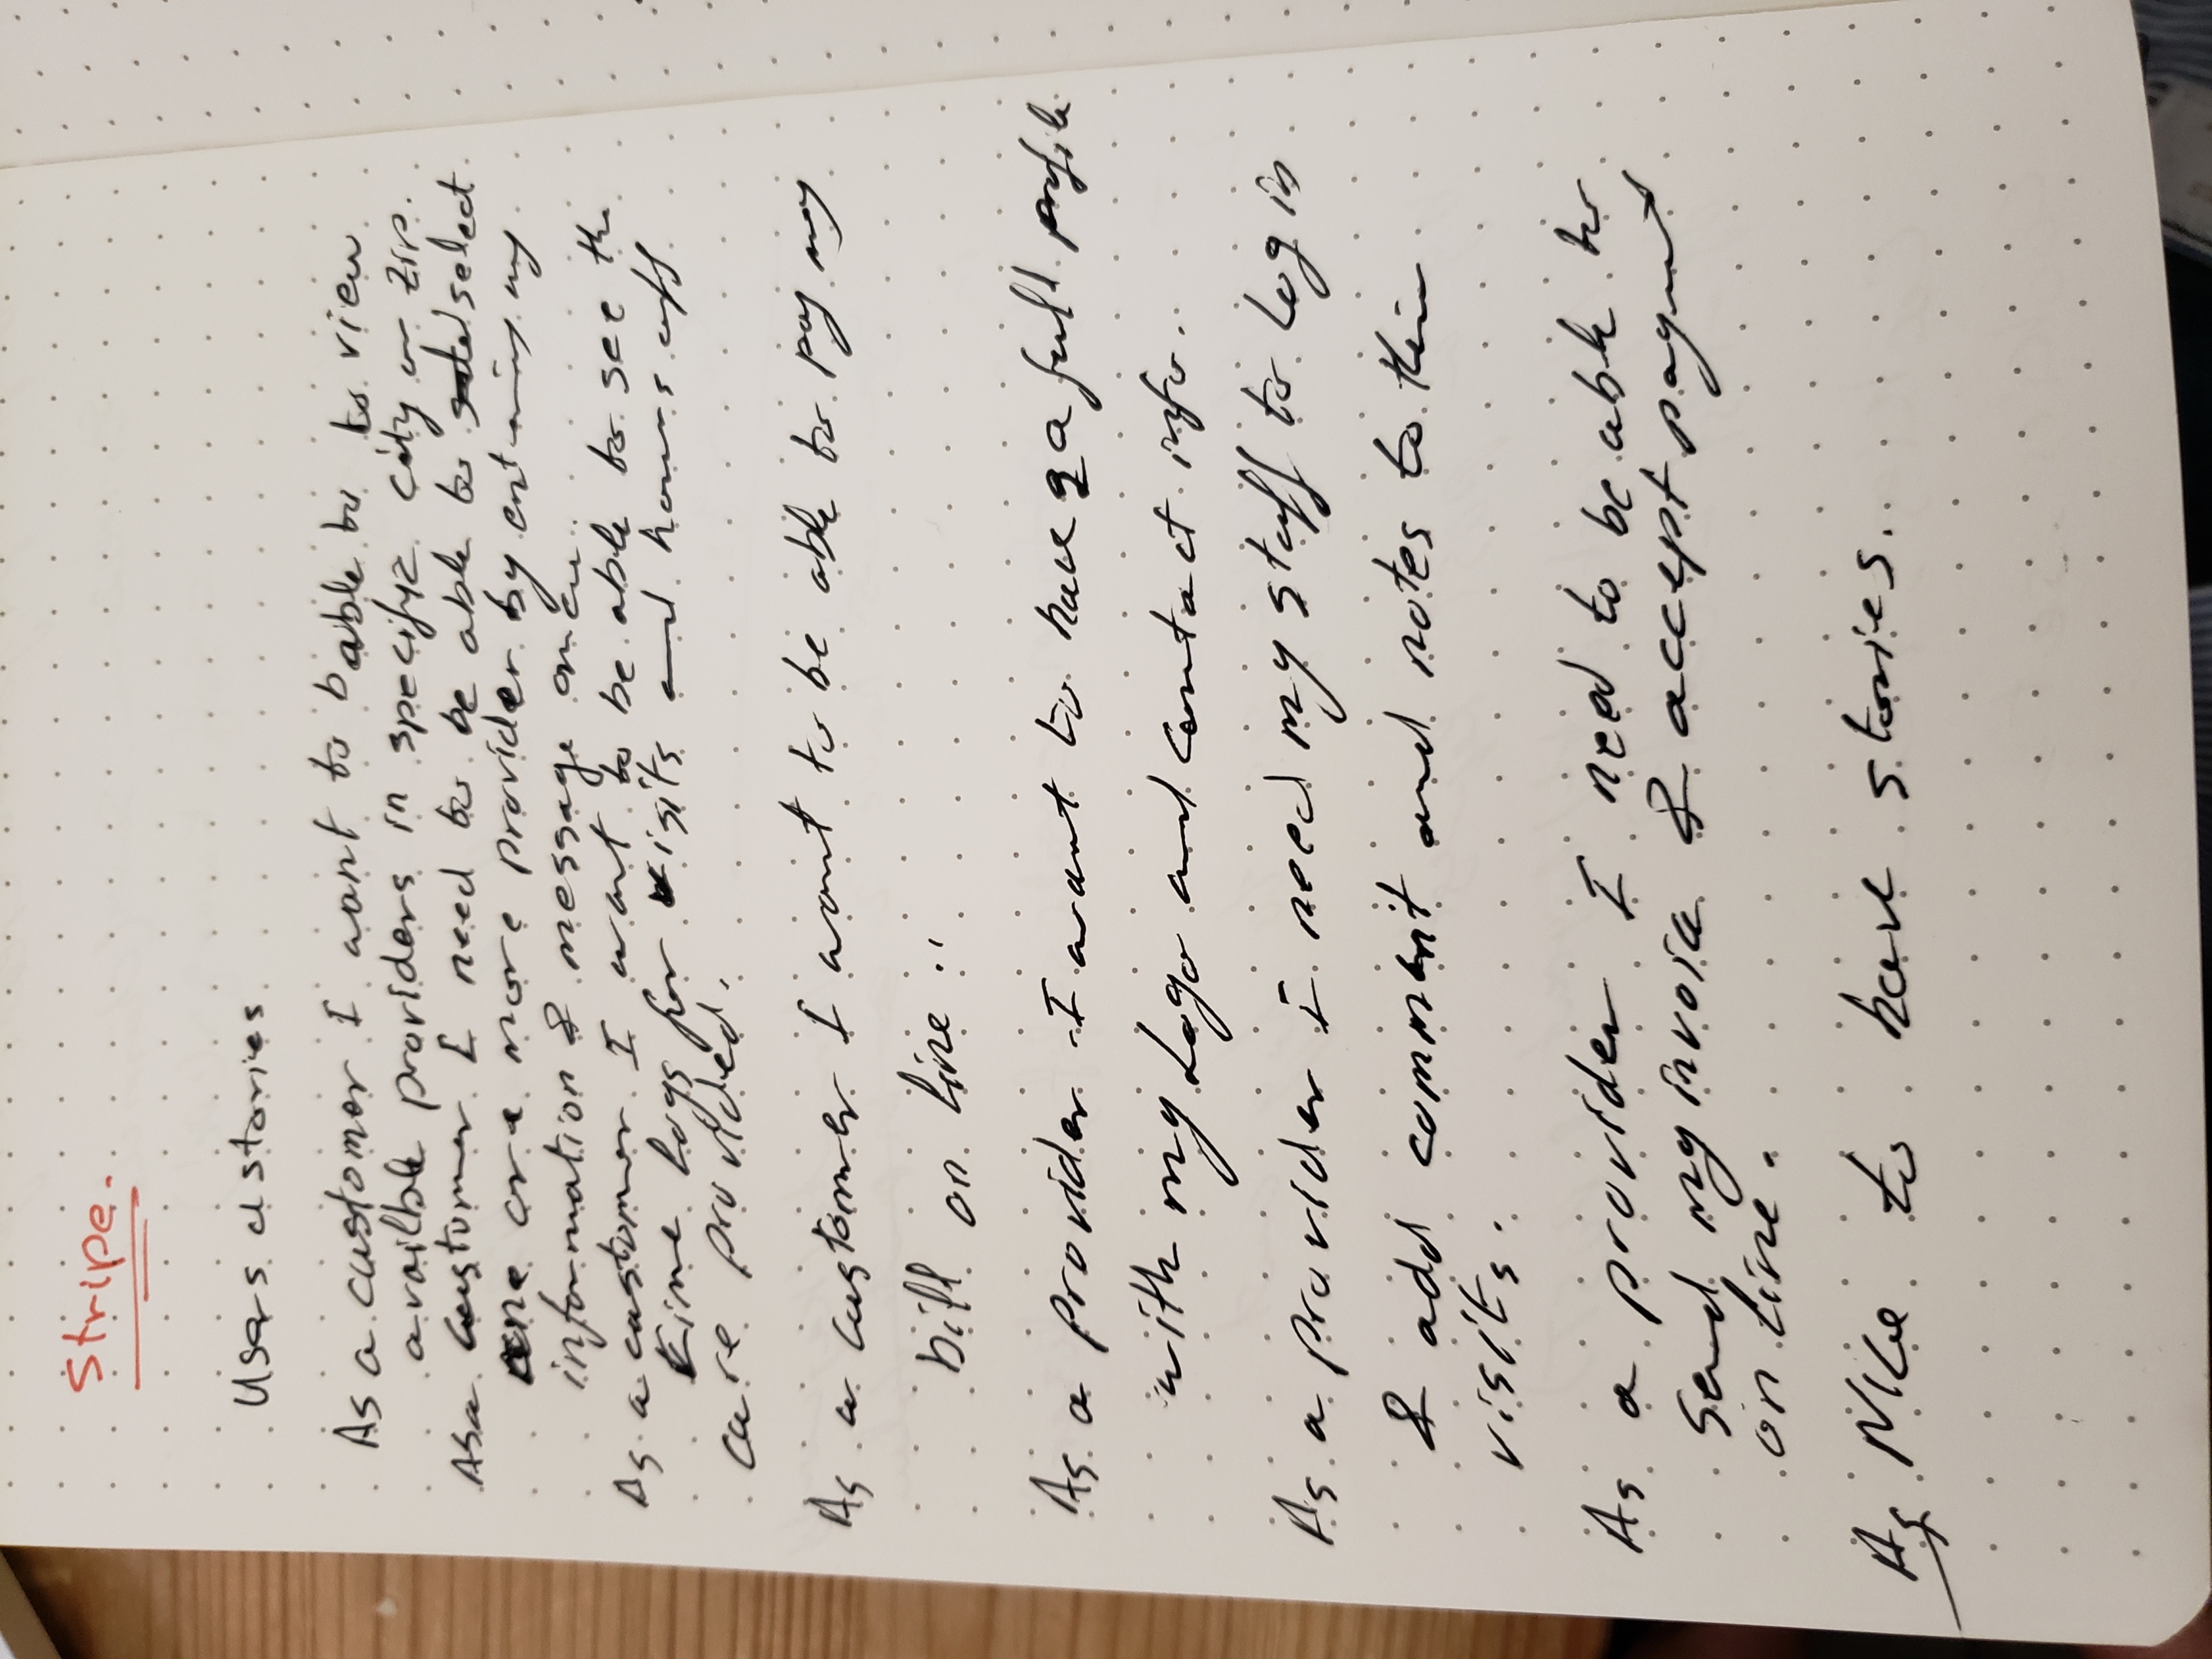 Stripe.
Users stories
As a customer I want to b able to to view
availble providers in specific city or zip.
As a customer I need to be able to select
one or more provider by entering my
information & message once.
As a customer I want to be able to see the
time logs for visits and hours off
care provided.
As a customer I want to be able to pay my
bill on line ..
As a provider I want to have a full profile
with my Logo and contact info..
As a provider I need my staff to Log in
& add comment and notes to their
visits.
As a provider I need to be able to
send my invoice & accept payment
on line.
As Nice to have stories.